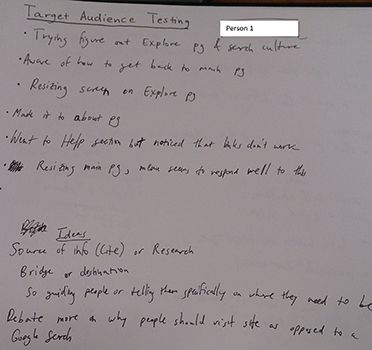 Target Audience Testing
Person 1
• Trying figure out Explore pg & serch culture
• Aware of how to get back to main pg
• Resizing screen on Explore pg
• Made it to about pg
• Went to Help section but noticed that links don't work
• Resizing main pg, menu seems to respond well to this
Ideas
Source of info (Cite) or Research
Bridge or destination
So guiding people or telling them specifically on where they need to be
Debate more on why people should visit site as opposed to a
Google Serch